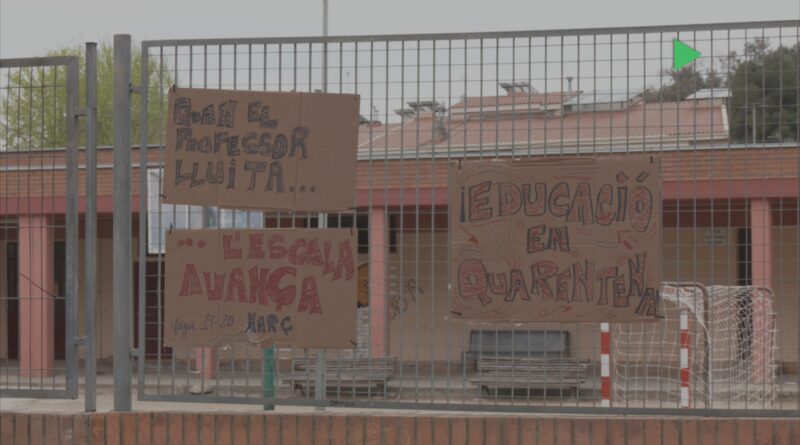 QUAN EL
PROFESSOR
LLUITA...
... L'ESCALA
AVANÇA
Vaga 19-20 MARÇ
¡EDUCACIÓ
EN
QUARENTENA!